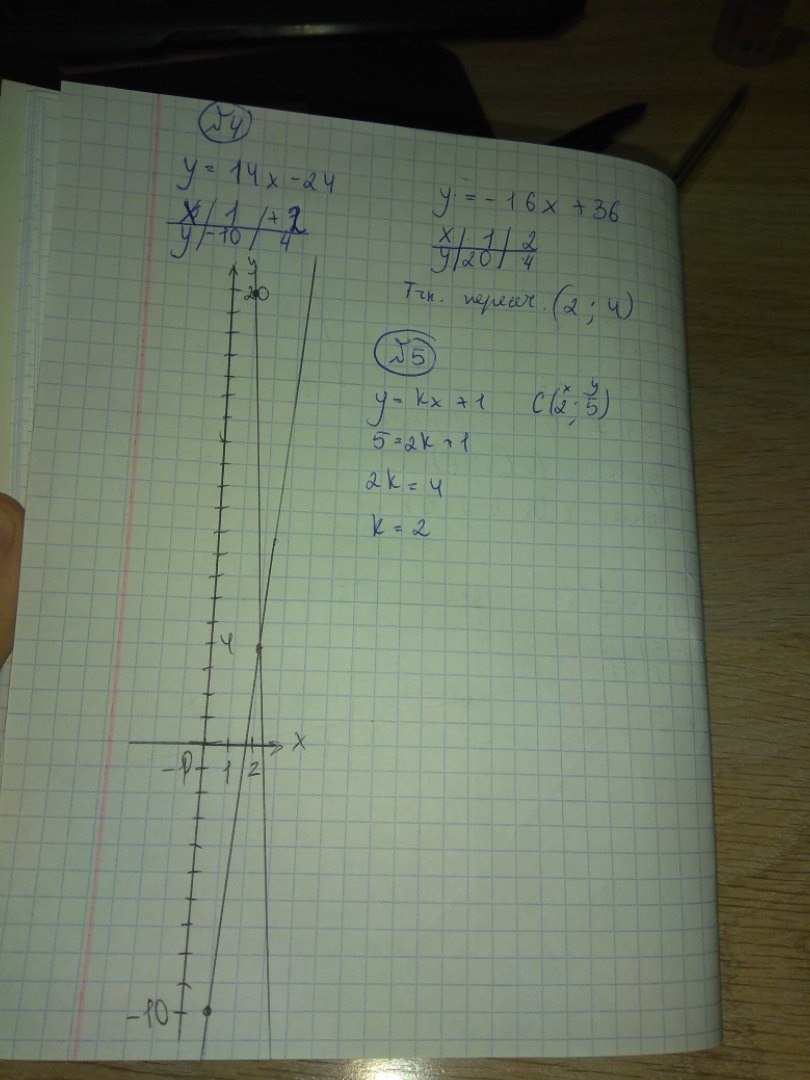 №4
y = 14x - 24
x | 1 | +2
y | -10 | 4
y = -16x + 36
x | 1 | 2
y | 20 | 4
Тчк. пересеч. (2; 4)
№5
y = kx + 1 C(2; 5)
x y
5 = 2k + 1
2k = 4
k = 2
y
20
4
0 1 2 x
-10